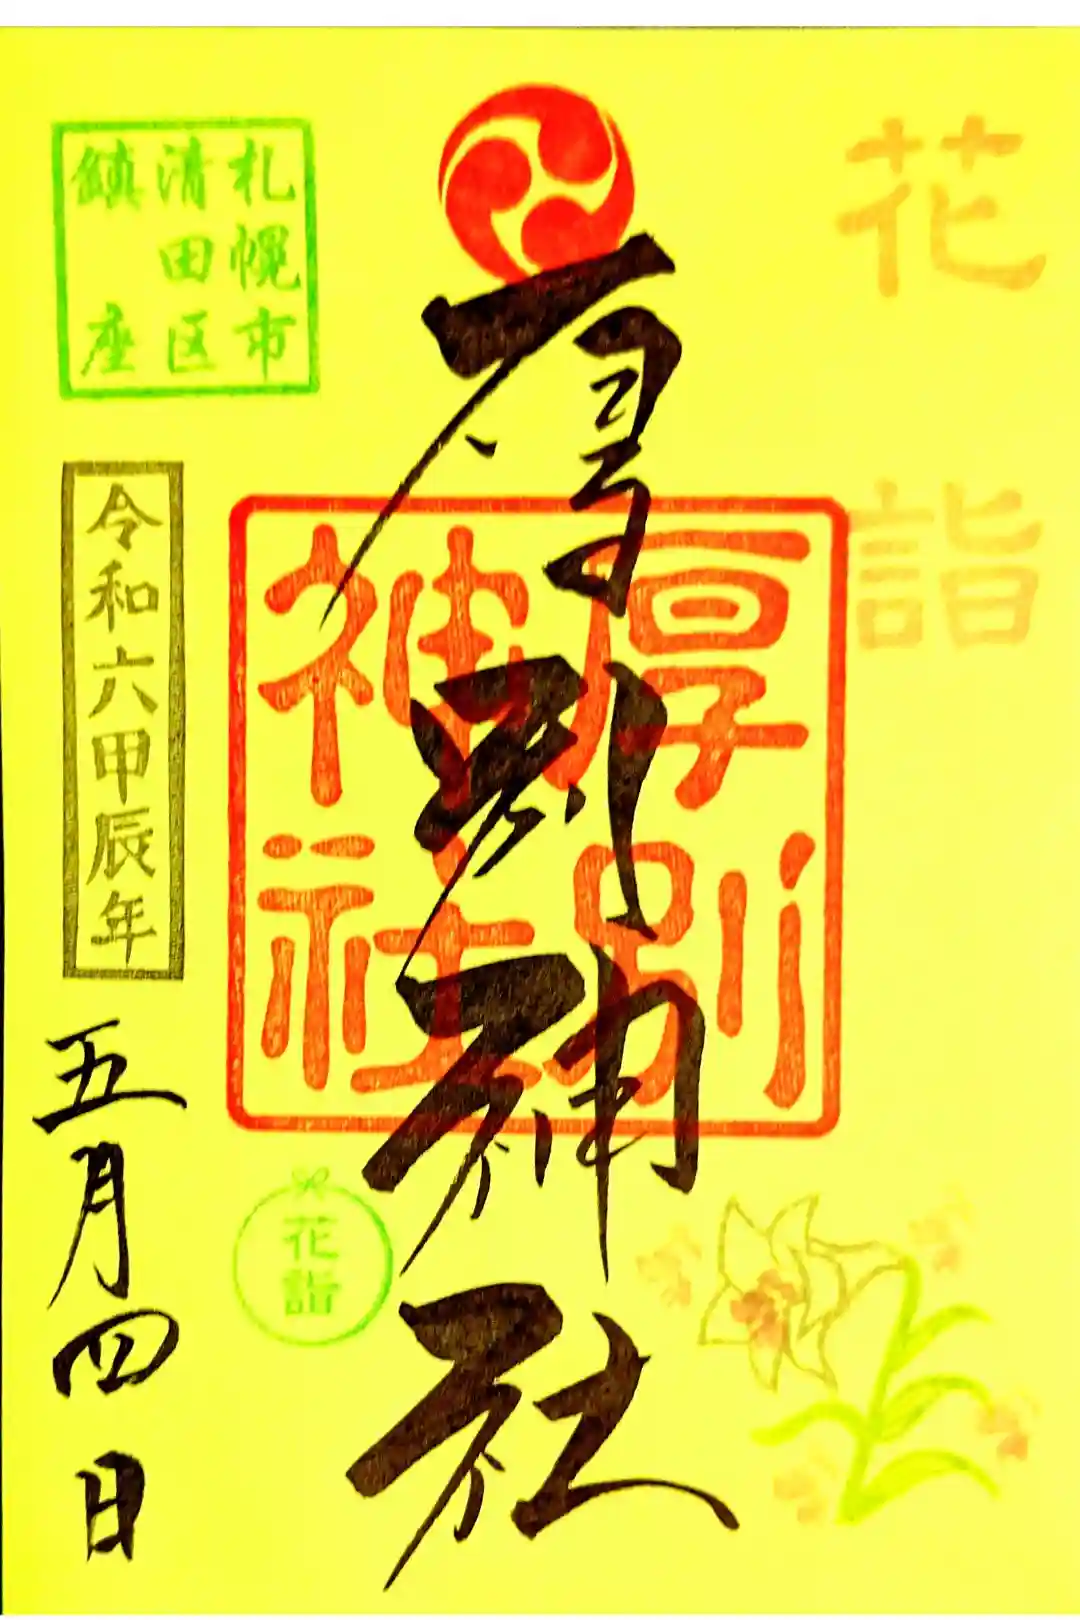 花詣
厚別神社
厚別
神社
札幌市
清田区
鎮座
令和六甲辰年
五月四日
花詣